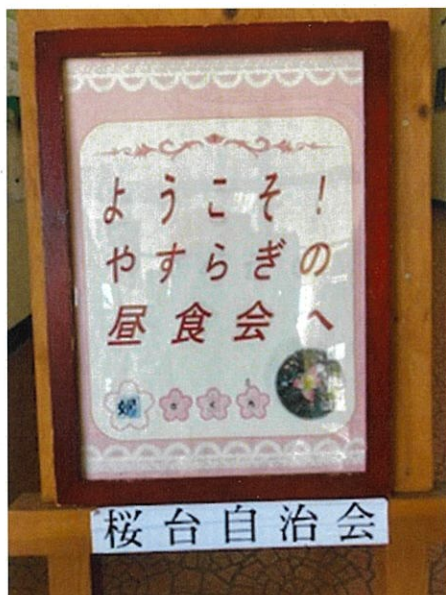 ようこそ!
やすらぎの
昼食会へ
桜台自治会